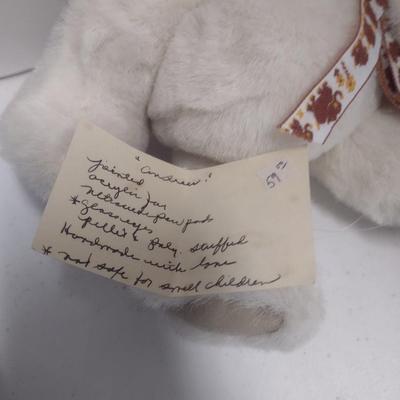 "Andrew"
jointed
acrylic fur
ultrasuede paw pads
* glass eyes
pellet & Poly. stuffed
Handmade with love
* not safe for small children
59